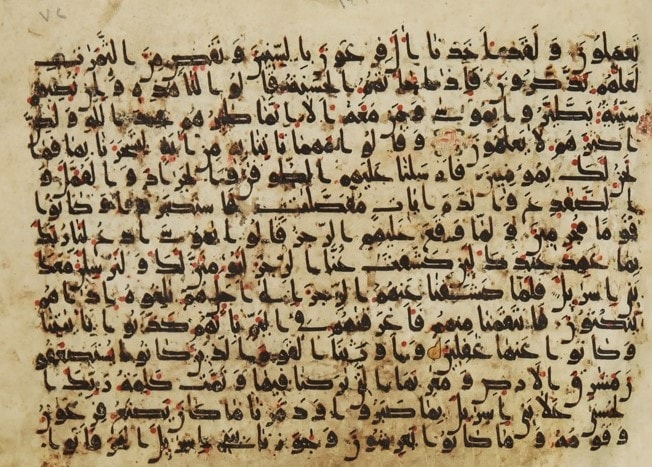 تعملون ولقد اخذنا ال فرعون بالسنين ونقص من الثمرت
لعلهم يذكرون فاذا جاتهم الحسنة قالوا لنا هذه وان تصبهم
سيئة يطيروا بموسى ومن معه الا انما طيرهم عند الله ولكن
اكثرهم لا يعلمون وقالوا مهما تاتنا به من اية لتسحرنا بها فما
نحن لك بمومنين فارسلنا عليهم الطوفن والجراد والقمل و
الضفدع والدم ايات مفصلت فاستكبروا وكانوا
قوما مجرمين ولما وقع عليهم الرجز قالوا يموسى ادع لنا ربك
بما عهد عندك لئن كشفت عنا الرجز لنومنن لك ولنرسلن معك
بني اسريل فلما كشفنا عنهم الرجز الى اجل هم بلغوه اذا هم
ينكثون فانتقمنا منهم فاغرقنهم في اليم بانهم كذبوا بايتنا
وكانوا عنها غفلين واورثنا القوم الذين كانوا يستضعفو
ن مشرق الارض ومغربها التي بركنا فيها وتمت كلمة ربك ا
لحسنى على بني اسريل بما صبروا ودمرنا ما كان يصنع فرعون
وقومه وما كانوا يعرشون وجوزنا ببني اسريل البحر فاتوا